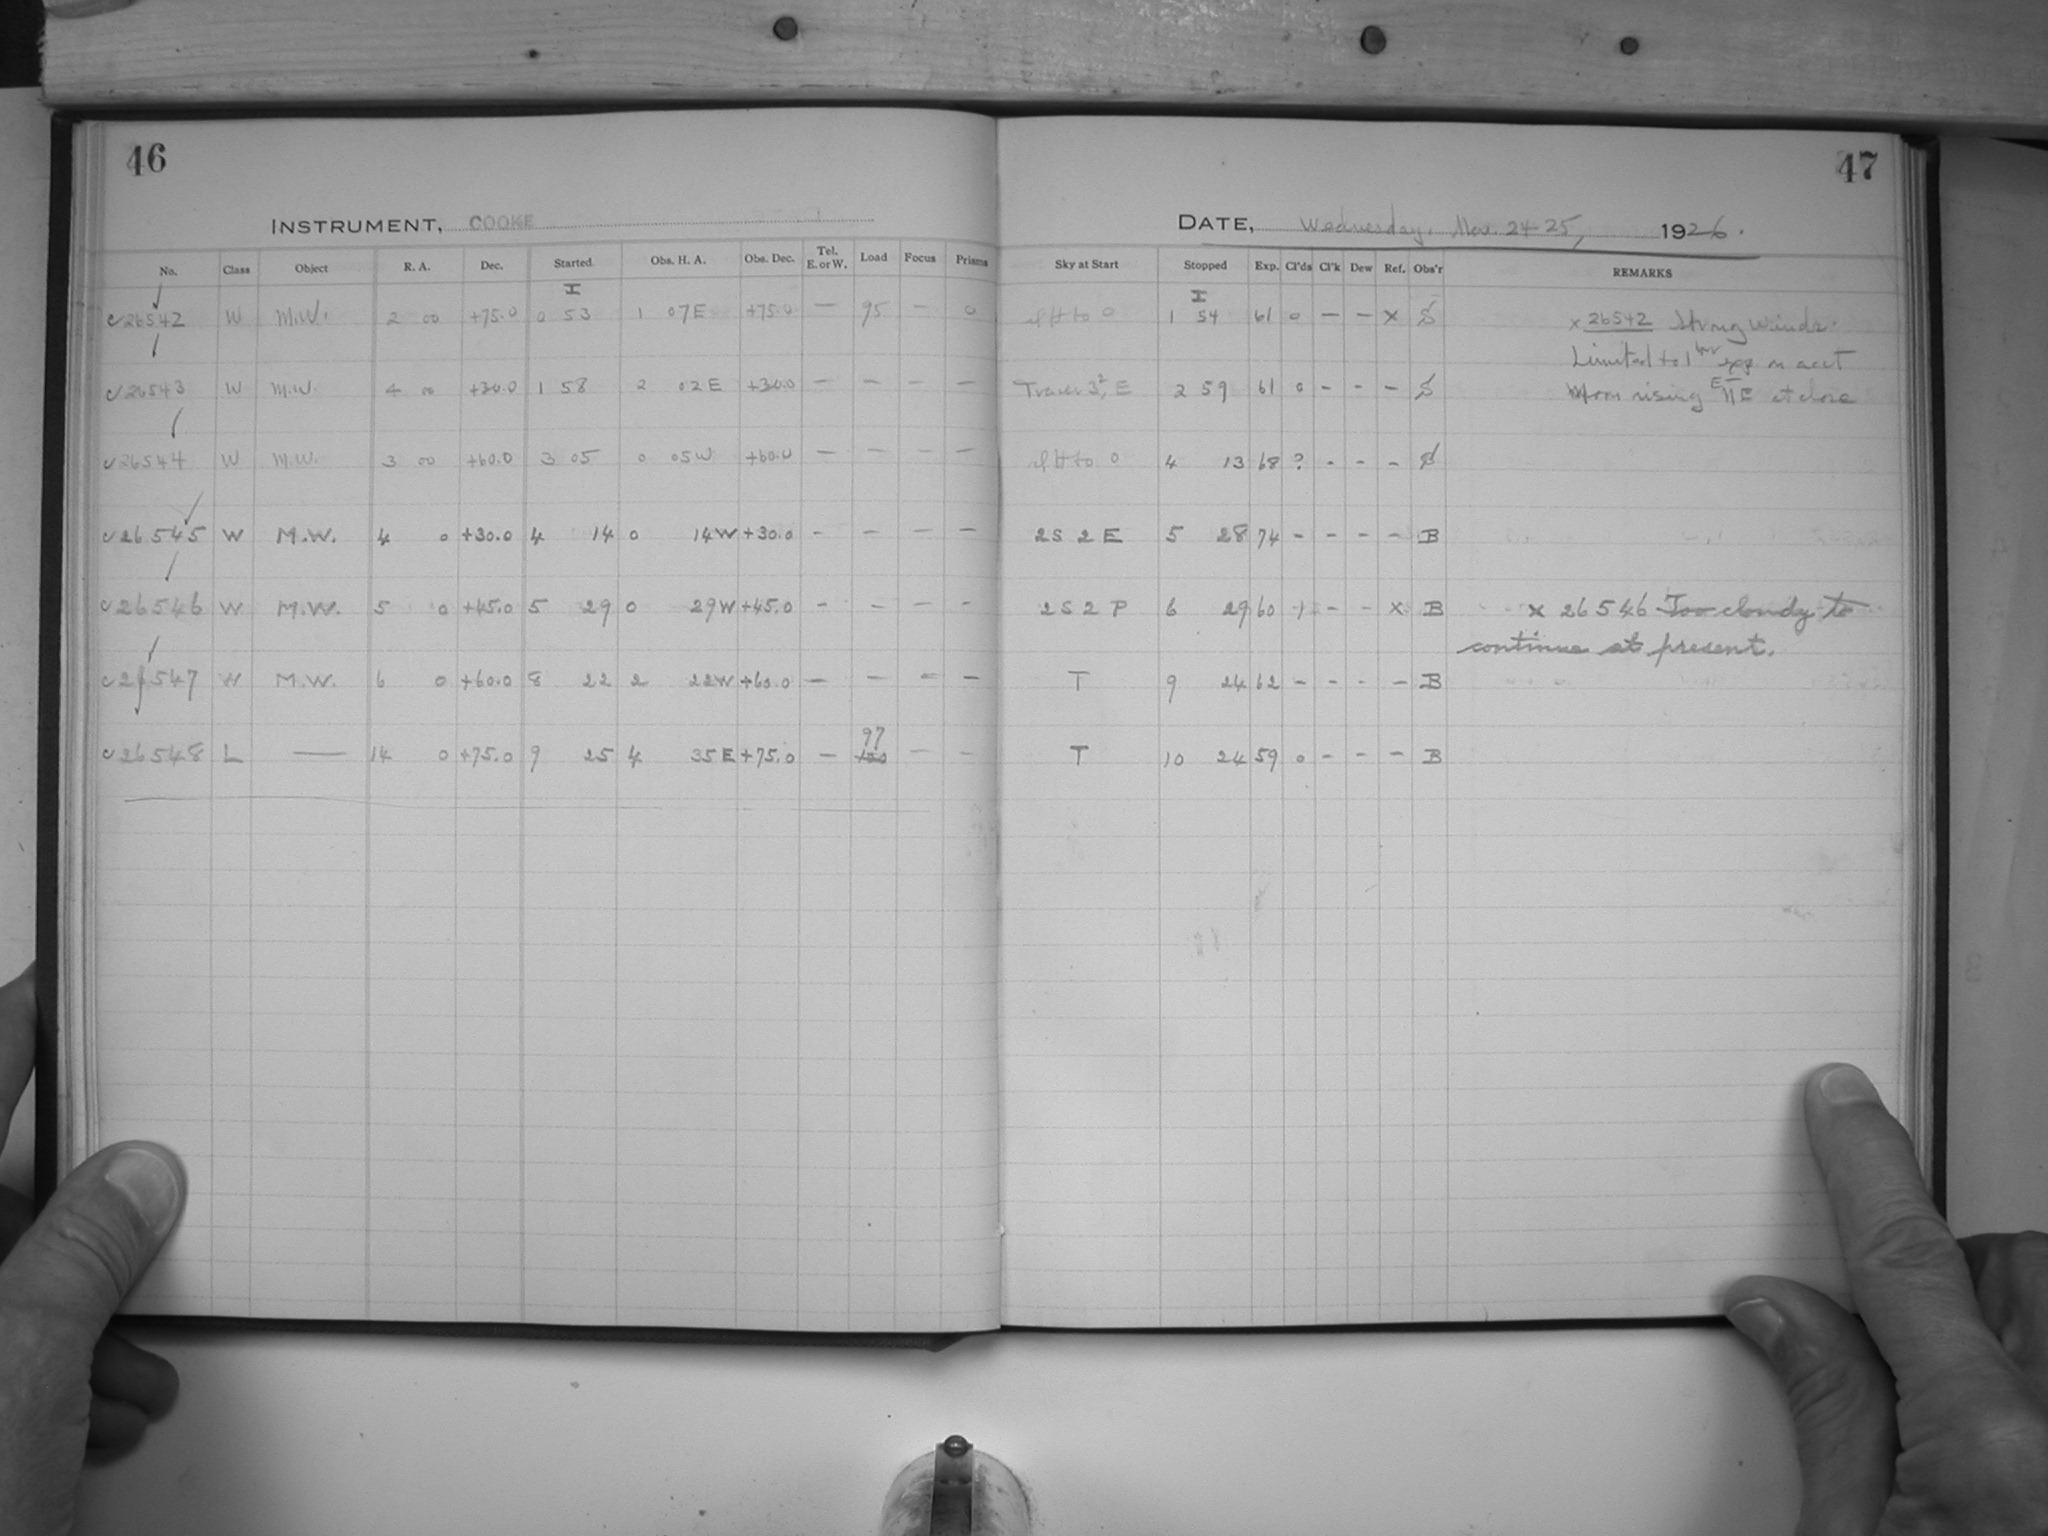 46
47
INSTRUMENT, COOKE
DATE, Wednesday, Nov. 24-25, 1926.
No. Class Object R. A. Dec. Started Obs. H. A. Obs. Dec. Tel. E. or W. Load Focus Prisms Sky at Start Stopped Exp. Cl'ds Cl'k Dew Ref. Obs'r REMARKS
I I
c 26542 W M.W. 2 00 +75.0 0 53 1 07E +75.0 — 95 — 0 1 54 61 0 — — x S x 26542 Strong winds.
Limited to 1 hr exp. on acct
c 26543 W M.W. 4 00 +30.0 1 58 2 02E +30.0 — — — — 2 59 61 0 - - - S Moon rising at close
c 26544 W M.W. 3 00 +60.0 3 05 0 05W +60.0 — — — — 4 13 68 ? - - - S
c 26545 W M.W. 4 0 +30.0 4 14 0 14W +30.0 - — — — 2S 2E 5 28 74 - - - - B
c 26546 W M.W. 5 0 +45.0 5 29 0 29W +45.0 - - — — 2S 2P 6 29 60 1 - - x B x 26546 Too cloudy to
continue at present.
c 26547 W M.W. 6 0 +60.0 8 22 2 22W +60.0 — — — — T 9 24 62 - - - - B
97
c 26548 L — 14 0 +75.0 9 25 4 35E +75.0 — 100 — — T 10 24 59 0 - - - B